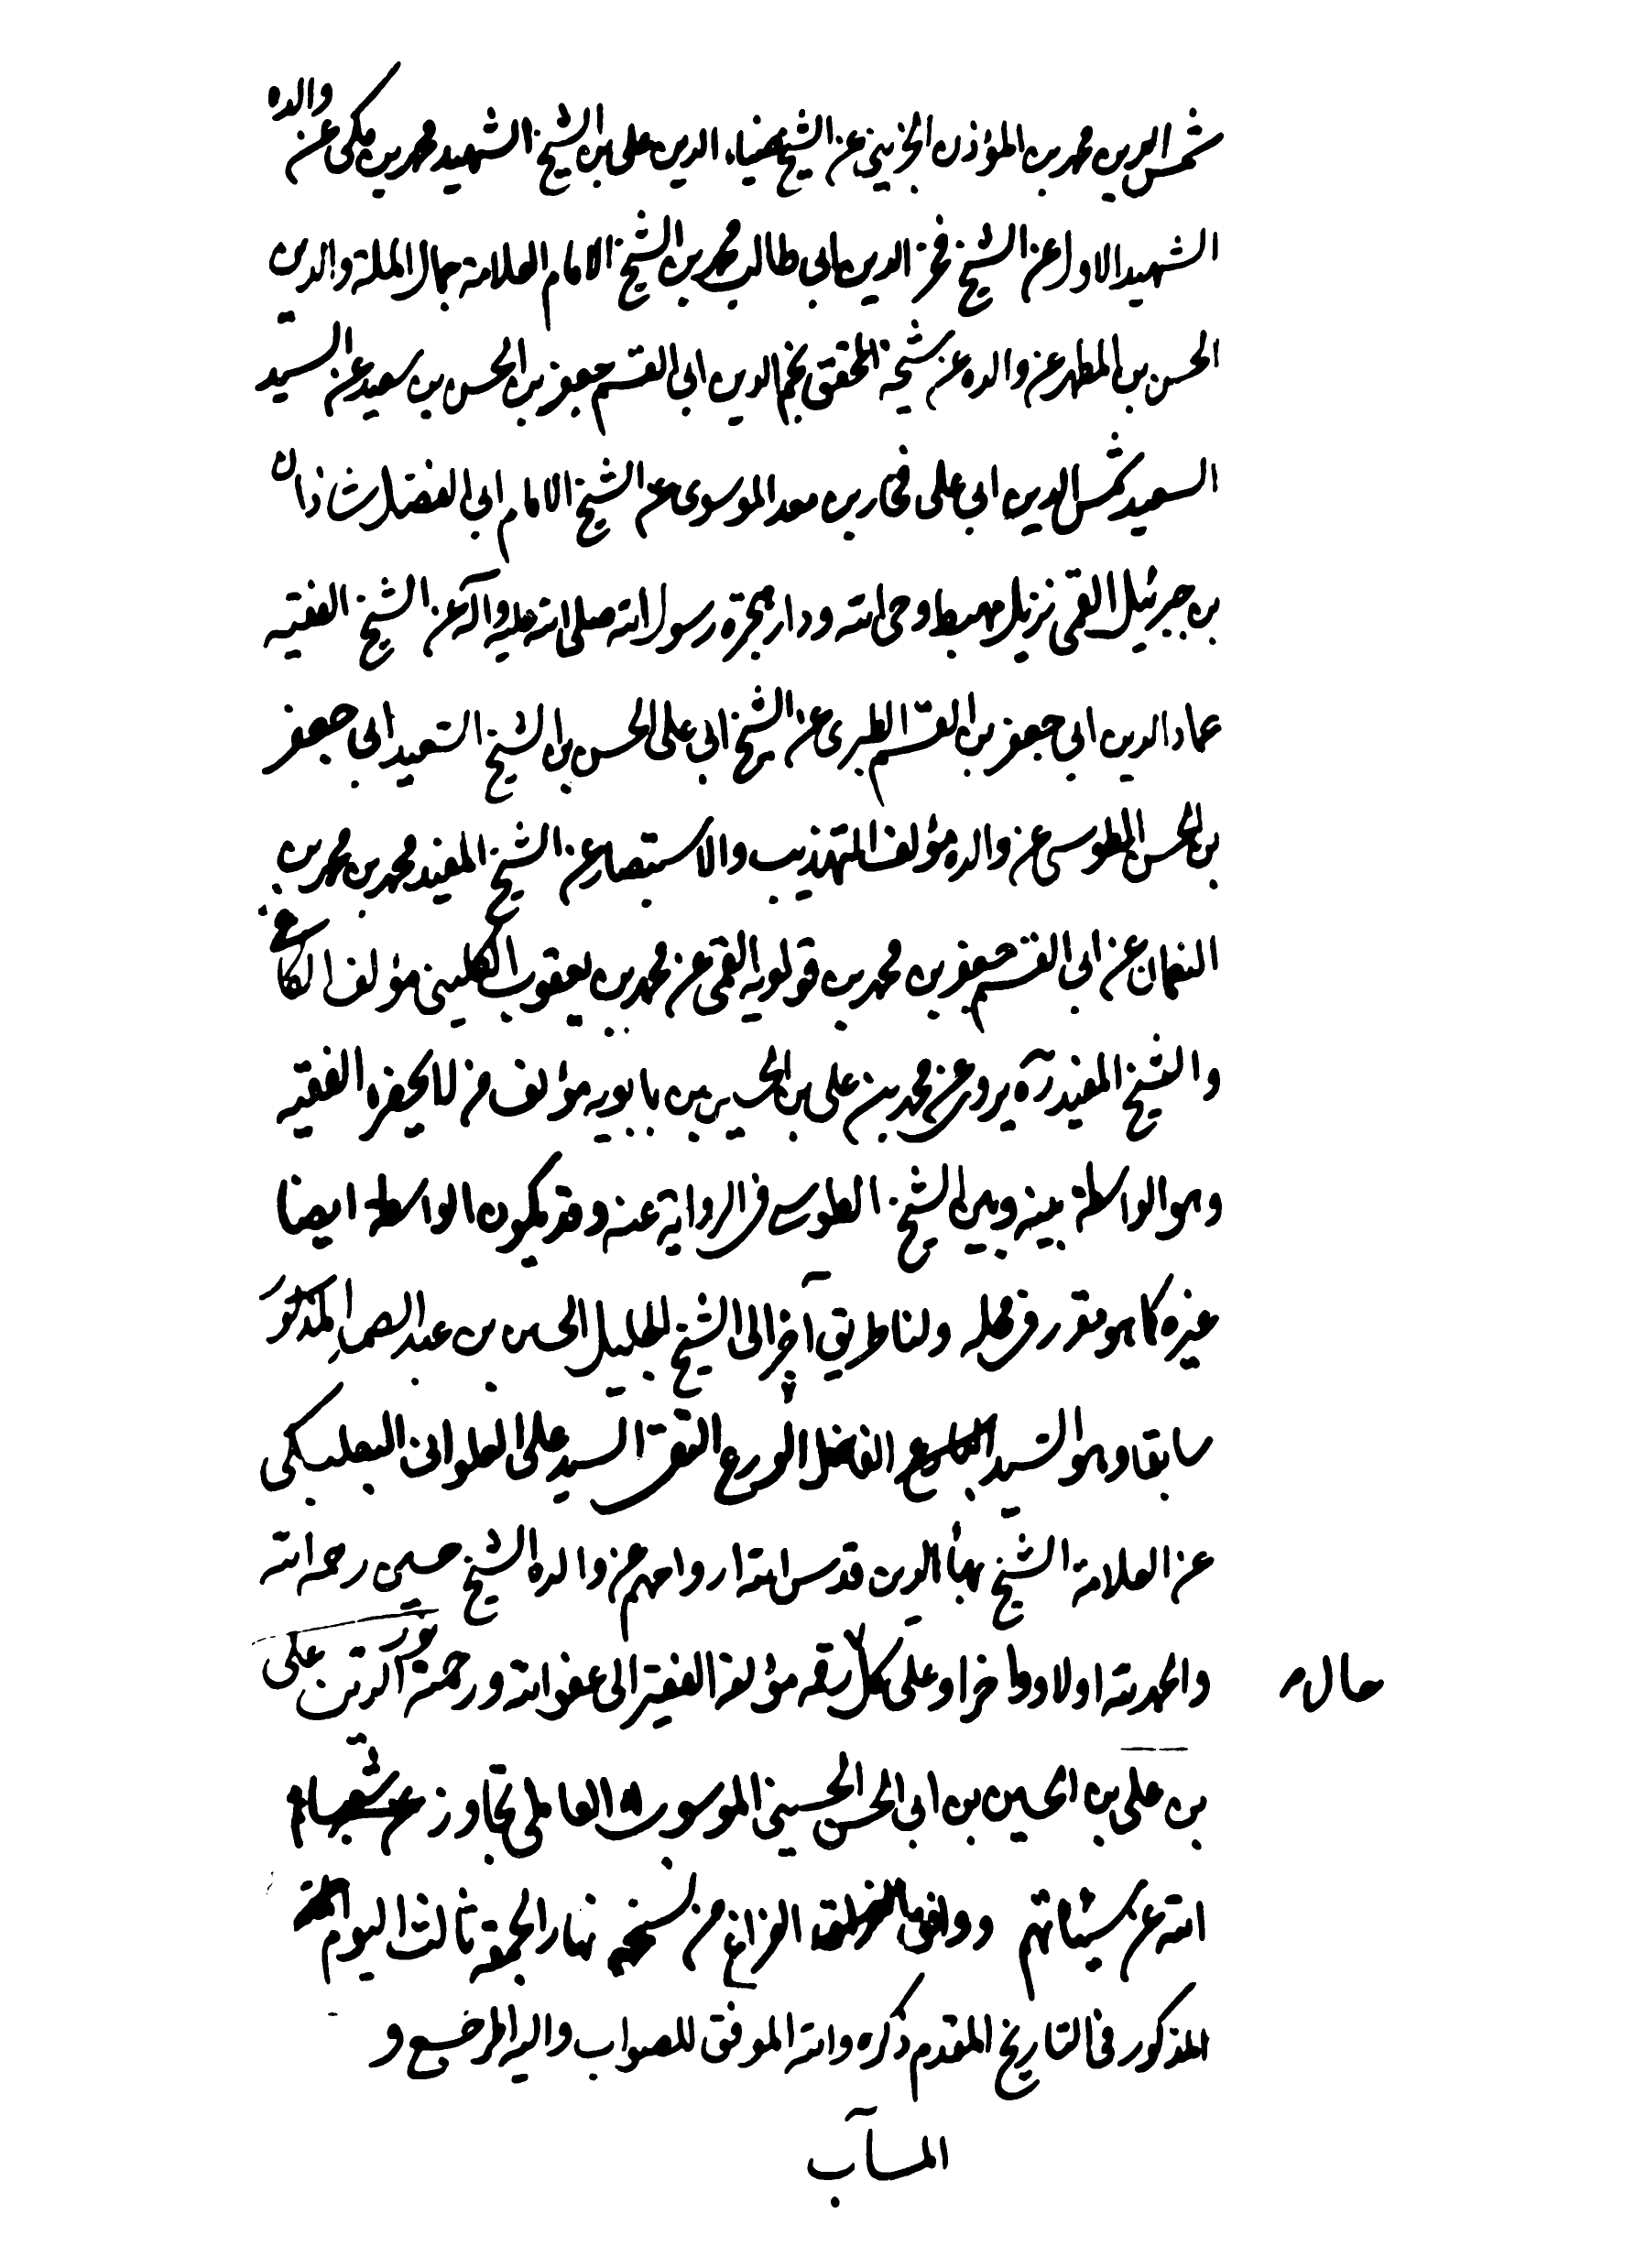 شمس الدين محمد بن المؤذن الجزيني عن الشيخ ضياء الدين علي بن الشيخ الشهيد محمد بن مكي عن والده
الشهيد الاول عن الشيخ فخر الدين ابي طالب محمد بن الشيخ الامام العلامة جمال الملة والدين
الحسن بن المطهر عن والده عن شيخه المحقق نجم الدين ابي القسم جعفر بن الحسن بن سعيد عن السيد
السعيد شمس الدين ابي علي فخار بن معد الموسوي عن الشيخ الامام ابي الفضل شاذان
بن جبرئيل القمي نزيل مهبط وحي الله ودار هجرة رسول الله صلى الله عليه وآله عن الشيخ الفقيه
عماد الدين ابي جعفر بن القسم الطبري عن الشيخ ابي علي الحسن بن الشيخ السعيد ابي جعفر
بن الحسن الطوسي عن والده مؤلف التهذيب والاستبصار عن الشيخ المفيد محمد بن محمد بن
النعمان عن ابي القسم جعفر بن محمد بن قولويه القمي عن محمد بن يعقوب الكليني مؤلف الكافي
والشيخ المفيد ره يروي عن محمد بن علي بن الحسين بن بابويه مؤلف من لا يحضره الفقيه
وهو الواسطة بينه وبين الشيخ الطوسي في الرواية عنه وقد يكون الواسطة ايضا
غيره كما هو مقرر في محله ولنا طريق آخر الى الشيخ الجليل الحسين بن عبد الصمد المذكور
سابقا وهو السيد الفاضل الورع التقي السيد علي العلواني البعلبكي
عن العلامة الشيخ بهاء الدين قدس الله ارواحهم عن والده الشيخ حسين رحمه الله
والحمد لله اولا واخرا وعلى كل حال رقمه مؤلفه الفقير الى عفو الله ورحمته نور الدين علي
بن علي بن الحسين بن ابي الحسن الحسيني الموسوي العاملي تجاوز
الله عن سيئاتهم ووافق الفراغ من نسخه نهار الجمعة ثالث اليوم
المذكور في التاريخ المقدم ذكره والله الموفق للصواب واليه المرجع و
المآب